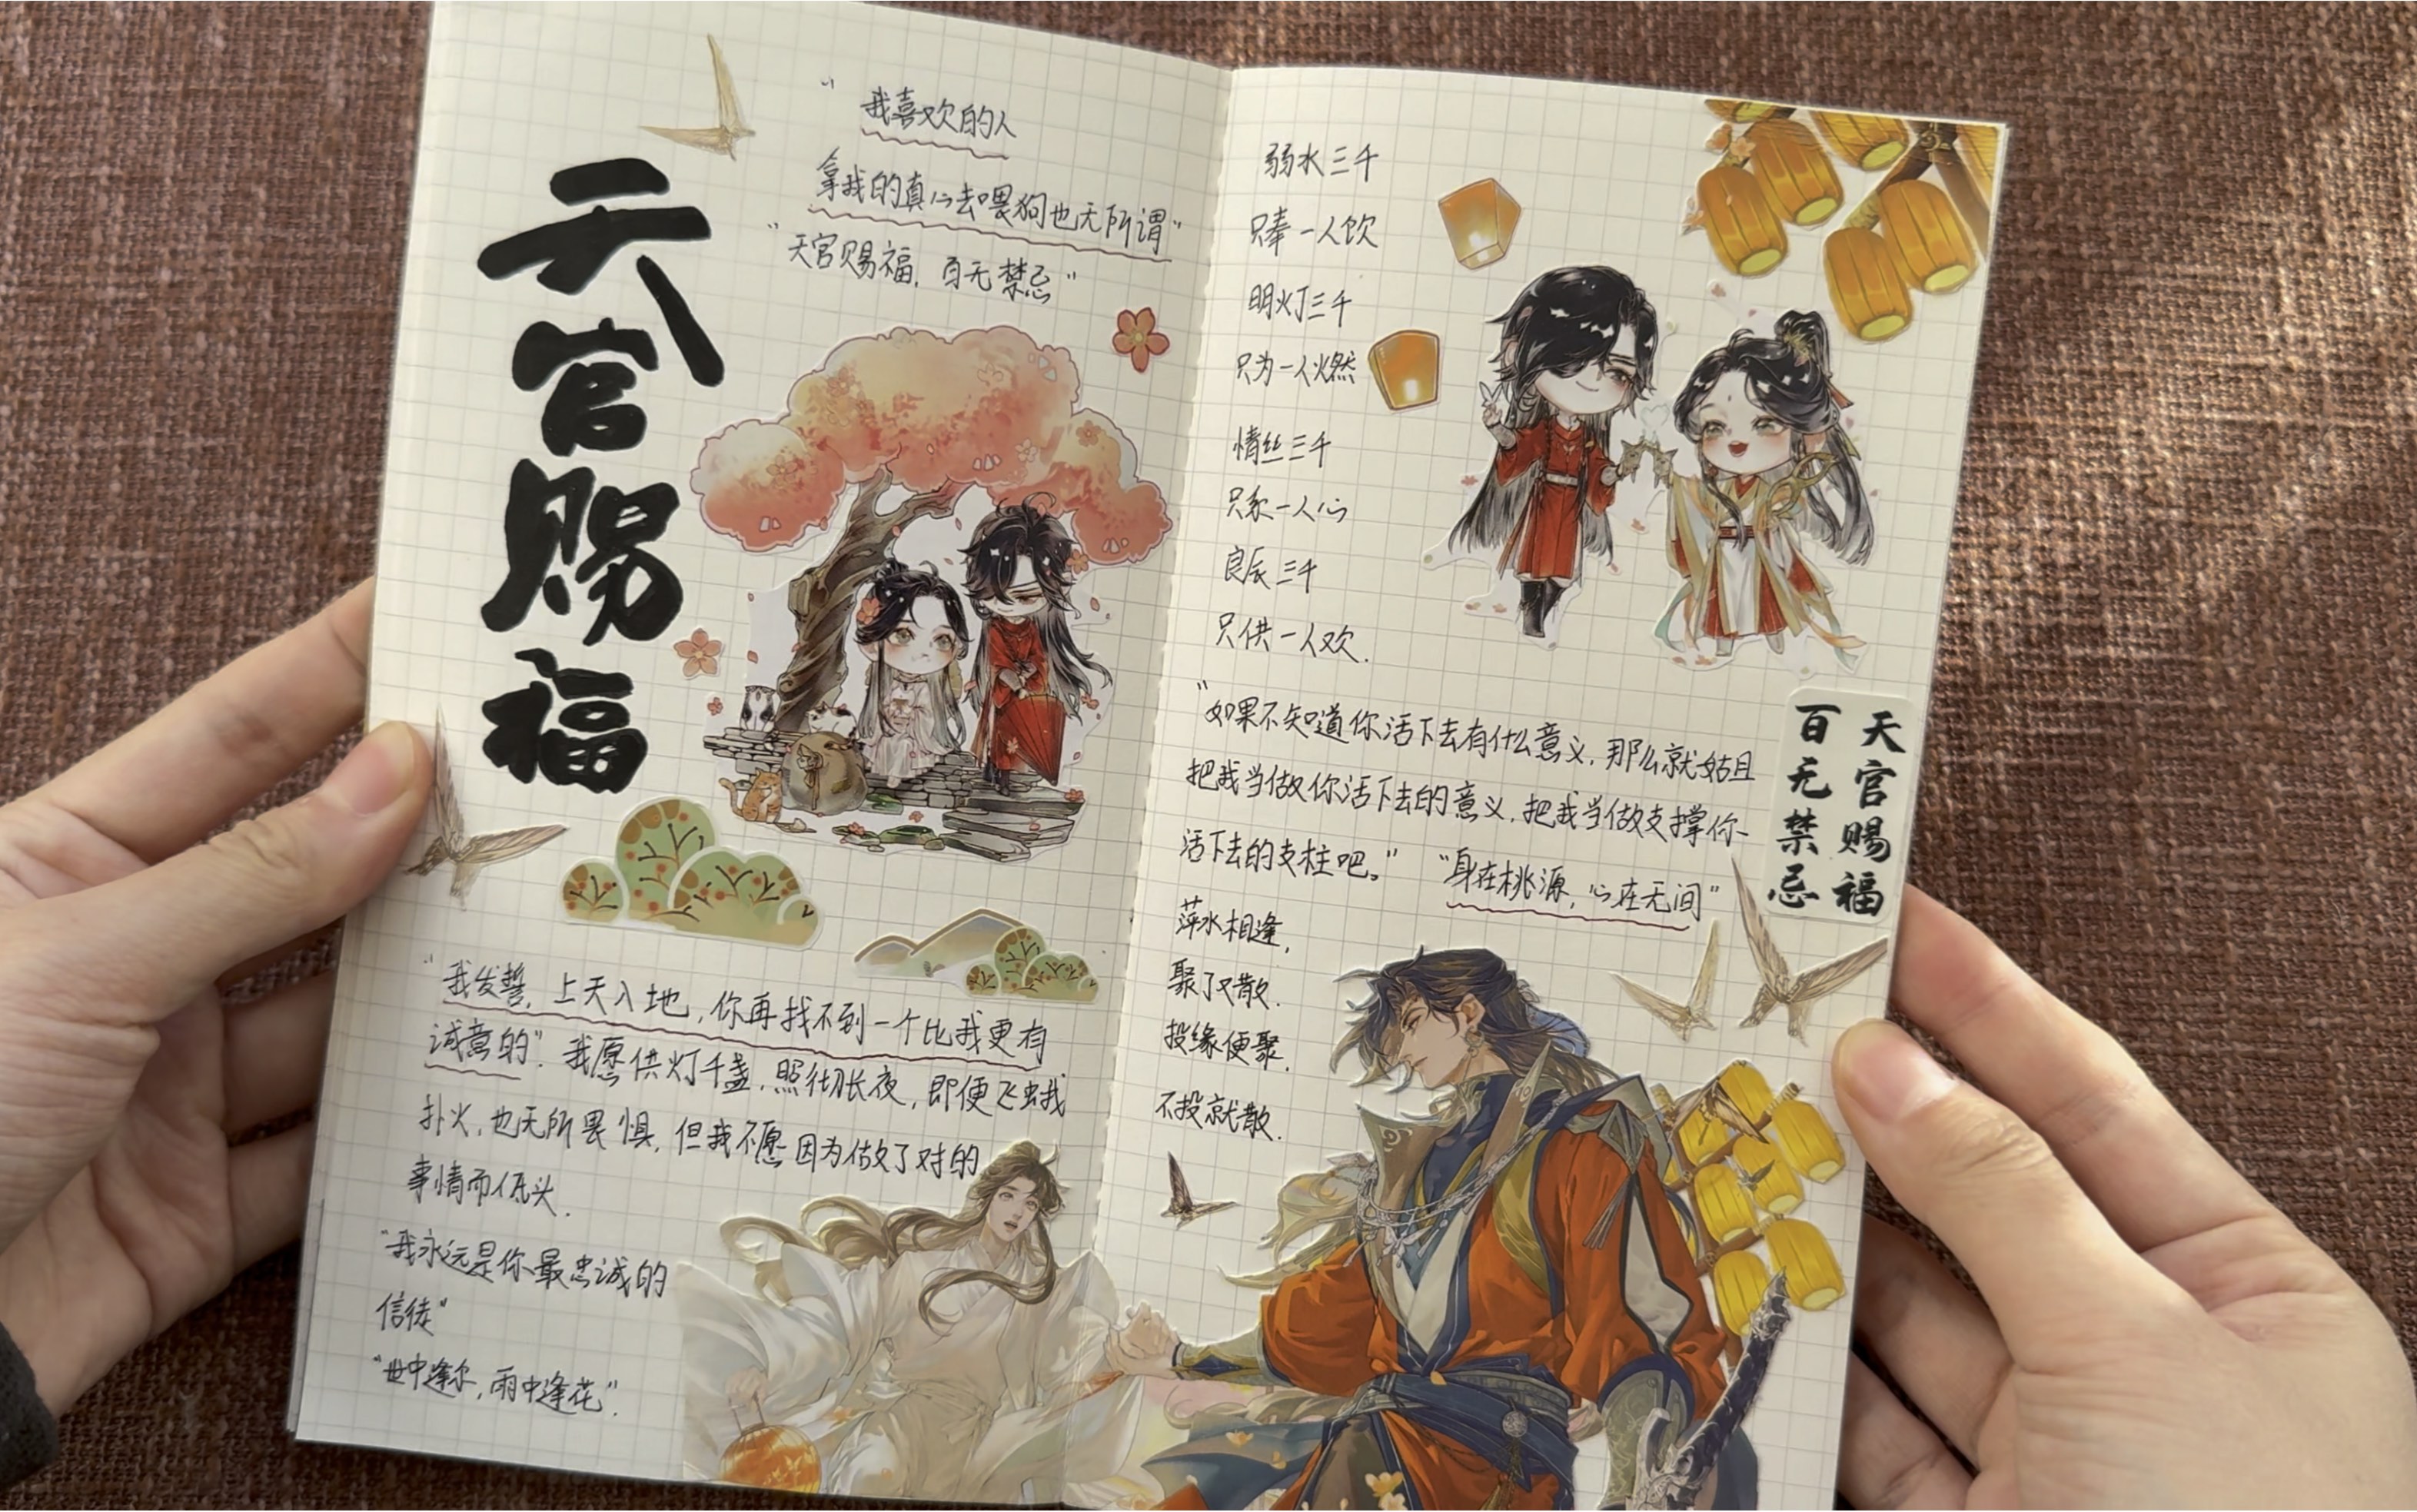 天官赐福
“我喜欢的人
拿我的真心去喂狗也无所谓”
“天官赐福，百无禁忌”
“我发誓，上天入地，你再找不到一个比我更有
诚意的”。我愿供灯千盏，照彻长夜，即便飞蛾
扑火，也无所畏惧，但我不愿因为做了对的
事情而低头．
“我永远是你最忠诚的
信徒”
“世中逢尔，雨中逢花”．
弱水三千
只奉一人饮
明灯三千
只为一人燃
情丝三千
只系一人心
良辰三千
只供一人欢．
“如果不知道你活下去有什么意义，那么就姑且
把我当做你活下去的意义，把我当做支撑你
活下去的支柱吧。” “身在桃源，心在无间”
萍水相逢，
聚了又散．
投缘便聚．
不投就散．
天官赐福
百无禁忌